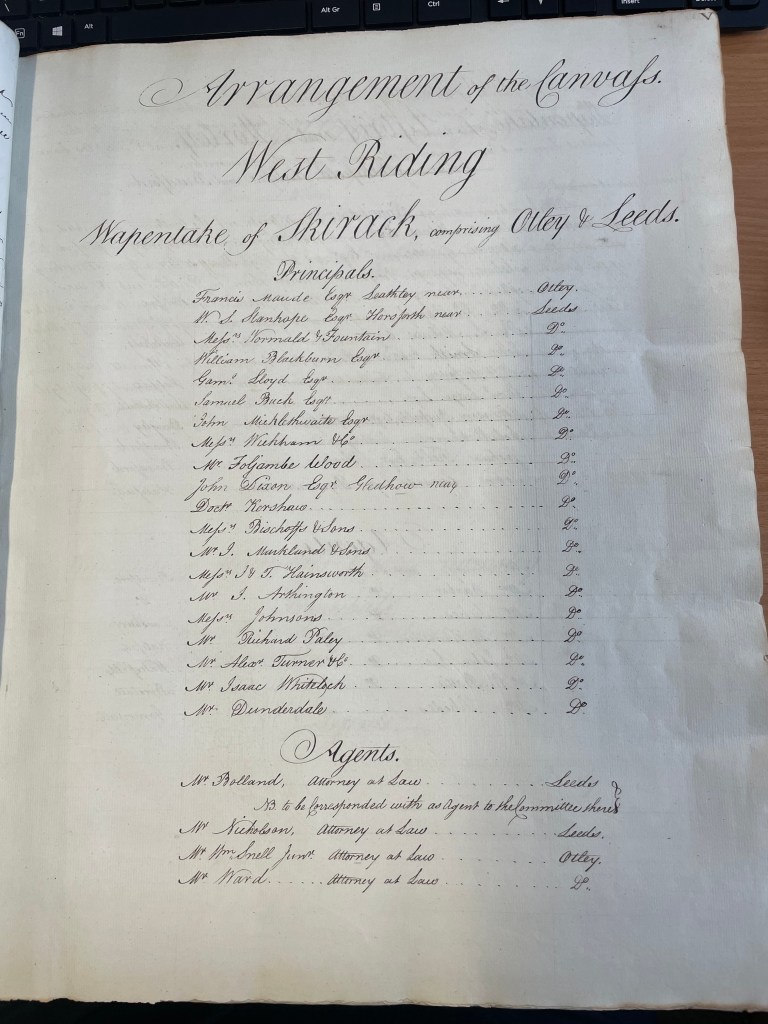 Fn
Alt
Alt Gr
Ctrl
Insert
Arrangement of the Canvaſs.
West Riding
Wapentake of Skirack, comprising Otley & Leeds.
Principals.
Francis Maude Esqr Leathley near Otley.
W. S. Stanhope Esqr Horsforth near Leeds
Meſsrs Wormald & Fountain Do
William Blackburn Esqr Do
Gaml Lloyd Esqr Do
Samuel Buck Esqr Do
John Micklethwaite Esqr Do
Meſsrs Wickham & Co Do
Mr Foljambe Wood Do
John Dixon Esqr Gledhow near Do
Doctr Kershaw Do
Meſsrs Bischoffs & Sons Do
Mr J. Markland & Sons Do
Meſsrs J & T. Hainsworth Do
Mr J. Arthington Do
Meſsrs Johnsons Do
Mr Richard Paley Do
Mr Alexr Turner & Co Do
Mr Isaac Whitelock Do
Mr Dunderdale Do
Agents.
Mr Bolland, Attorney at Law Leeds
NB to be Corresponded with as Agent to the Committee there
Mr Nicholson, Attorney at Law Leeds.
Mr Wm Snell Junr. Attorney at Law Otley.
Mr Ward Attorney at Law Do